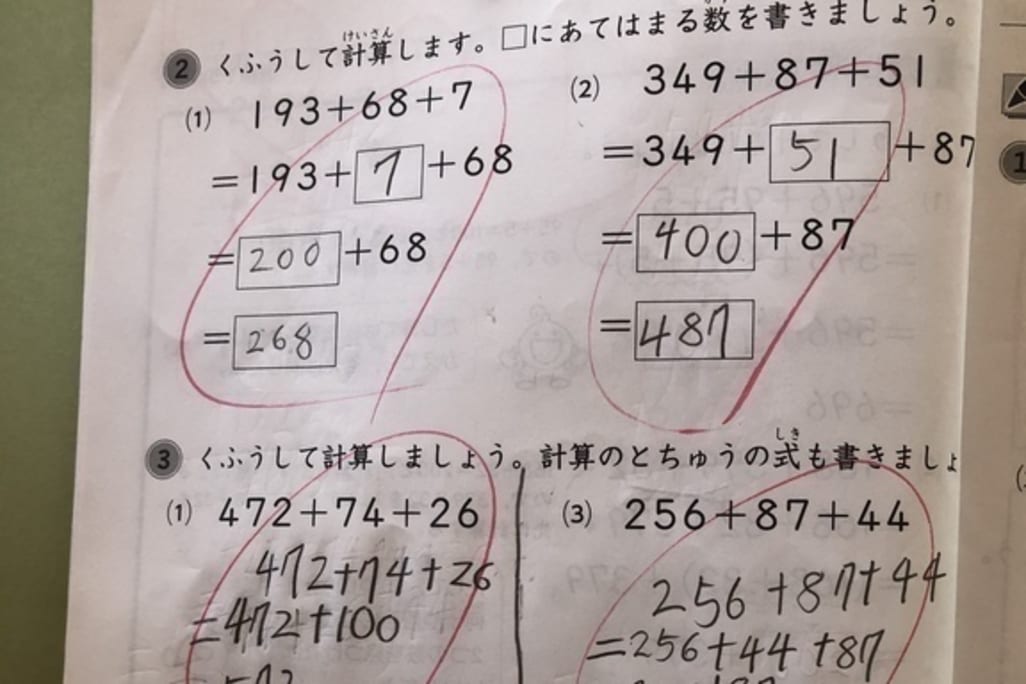 2 くふうして計算します。□にあてはまる数を書きましょう。
けいさん
(1) 193+68+7
=193+7+68
=200+68
=268
(2) 349+87+51
=349+51+87
=400+87
=487
3 くふうして計算しましょう。計算のとちゅうの式も書きましょ
しき
(1) 472+74+26
472+74+26
=472+100
572
(3) 256+87+44
256+87+44
=256+44+87